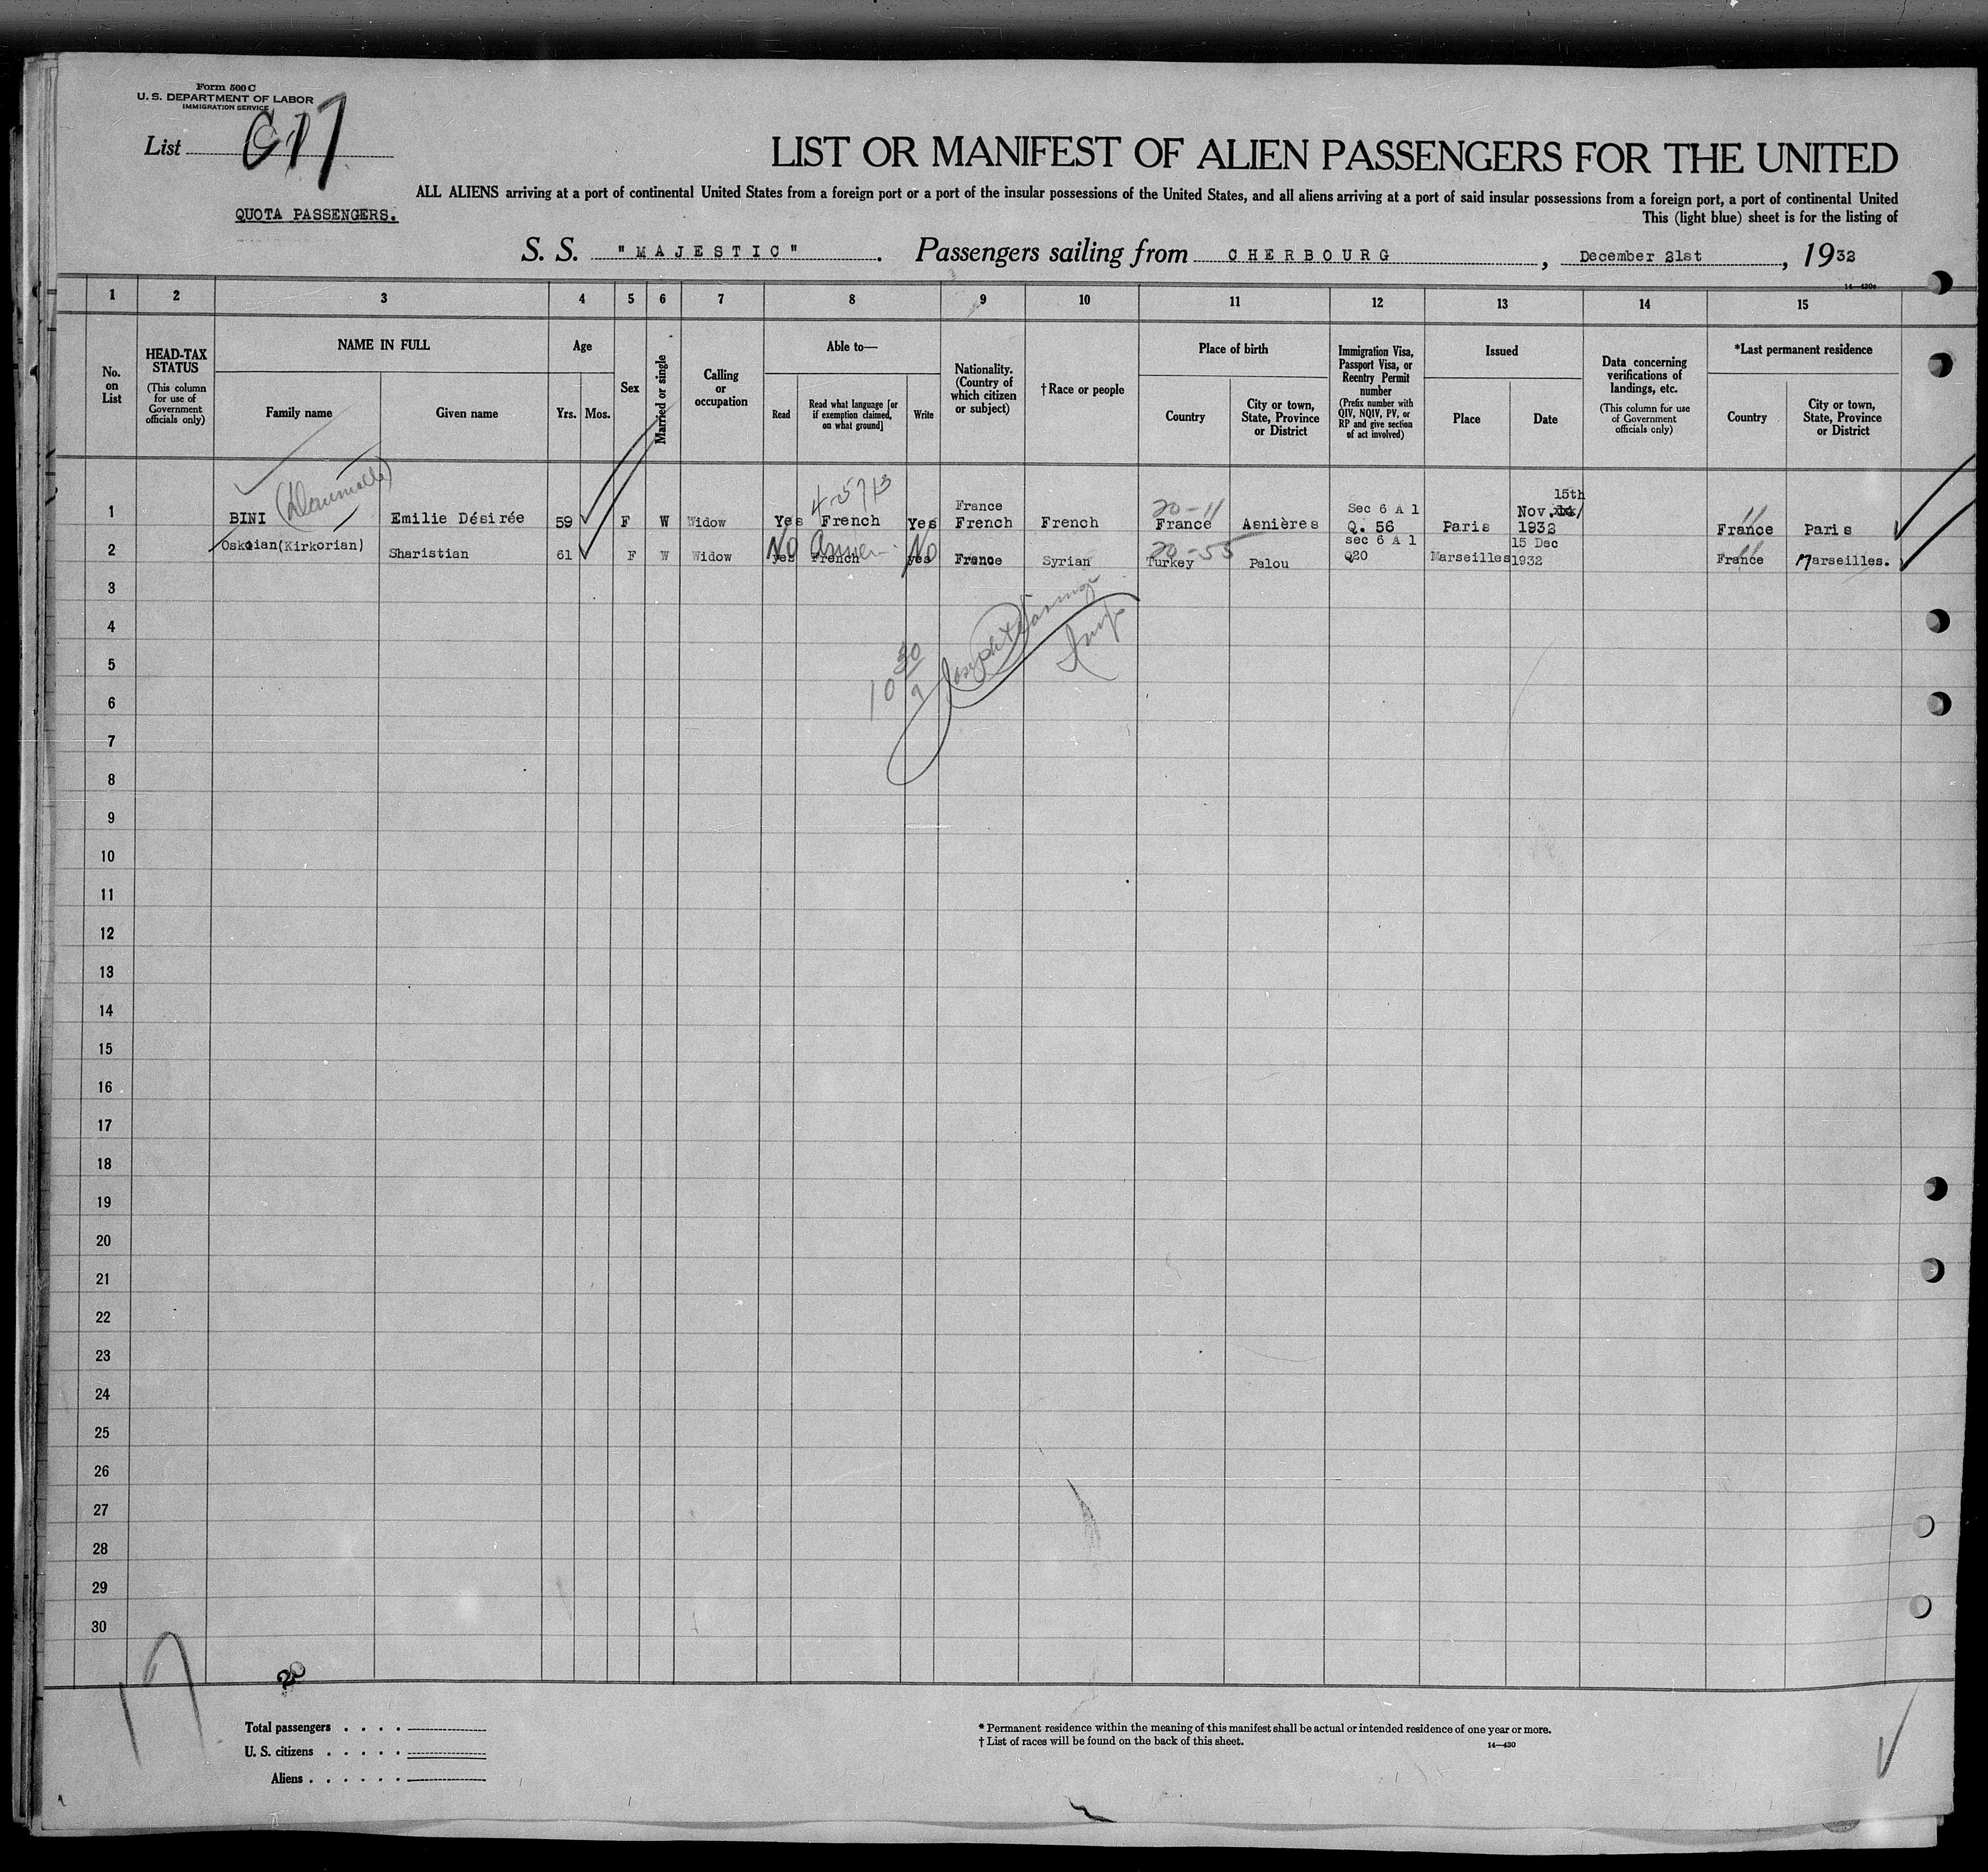 Form 500 C
U. S. DEPARTMENT OF LABOR
IMMIGRATION SERVICE
List C 17
LIST OR MANIFEST OF ALIEN PASSENGERS FOR THE UNITED
ALL ALIENS arriving at a port of continental United States from a foreign port or a port of the insular possessions of the United States, and all aliens arriving at a port of said insular possessions from a foreign port, a port of continental United
QUOTA PASSENGERS.
This (light blue) sheet is for the listing of
S. S. "MAJESTIC". Passengers sailing from CHERBOURG, December 21st, 1932
1 2 3 4 5 6 7 8 9 10 11 12 13 14 15
No. on List
HEAD-TAX STATUS
(This column for use of Government officials only)
NAME IN FULL
Family name
Given name
Age
Yrs. Mos.
Sex
Married or single
Calling or occupation
Able to—
Read
Read what language [or if exemption claimed, on what ground]
Write
Nationality. (Country of which citizen or subject)
†Race or people
Place of birth
Country
City or town, State, Province or District
Immigration Visa, Passport Visa, or Reentry Permit number
(Prefix number with QIV, NQIV, PV, or RP and give section of act involved)
Issued
Place
Date
Data concerning verifications of landings, etc.
(This column for use of Government officials only)
*Last permanent residence
Country
City or town, State, Province or District
15th
France 20-11 Sec 6 A 1 Nov.
1 BINI Emilie Désirée 59 F W Widow Yes French Yes French French France Asnières Q. 56 Paris 1932 France Paris
No No 20-55 sec 6 A 1 15 Dec
2 Oskoian(Kirkorian) Sharistian 61 F W Widow yes French yes France Syrian Turkey Palou Q20 Marseilles 1932 France Marseilles.
3
4
5
6
7
8
9
10
11
12
13
14
15
16
17
18
19
20
21
22
23
24
25
26
27
28
29
30
17
Total passengers . . . .
U. S. citizens . . . . .
Aliens . . . . . .
* Permanent residence within the meaning of this manifest shall be actual or intended residence of one year or more.
† List of races will be found on the back of this sheet.
14—430